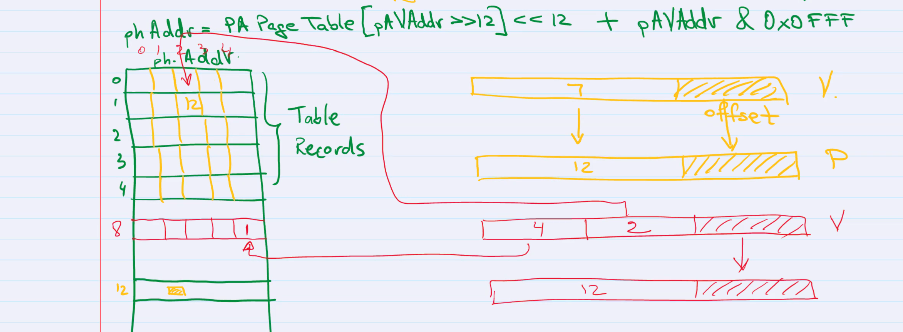 phAddr = PA Page Table [pAVAddr >>12] << 12 + pAVAddr & 0x0FFF
0 1 2 3 4
ph. Addr.
0
1 12
2
3
4
Table
Records
8 1
12
7 V.
offset
12 P
4 2 V
12